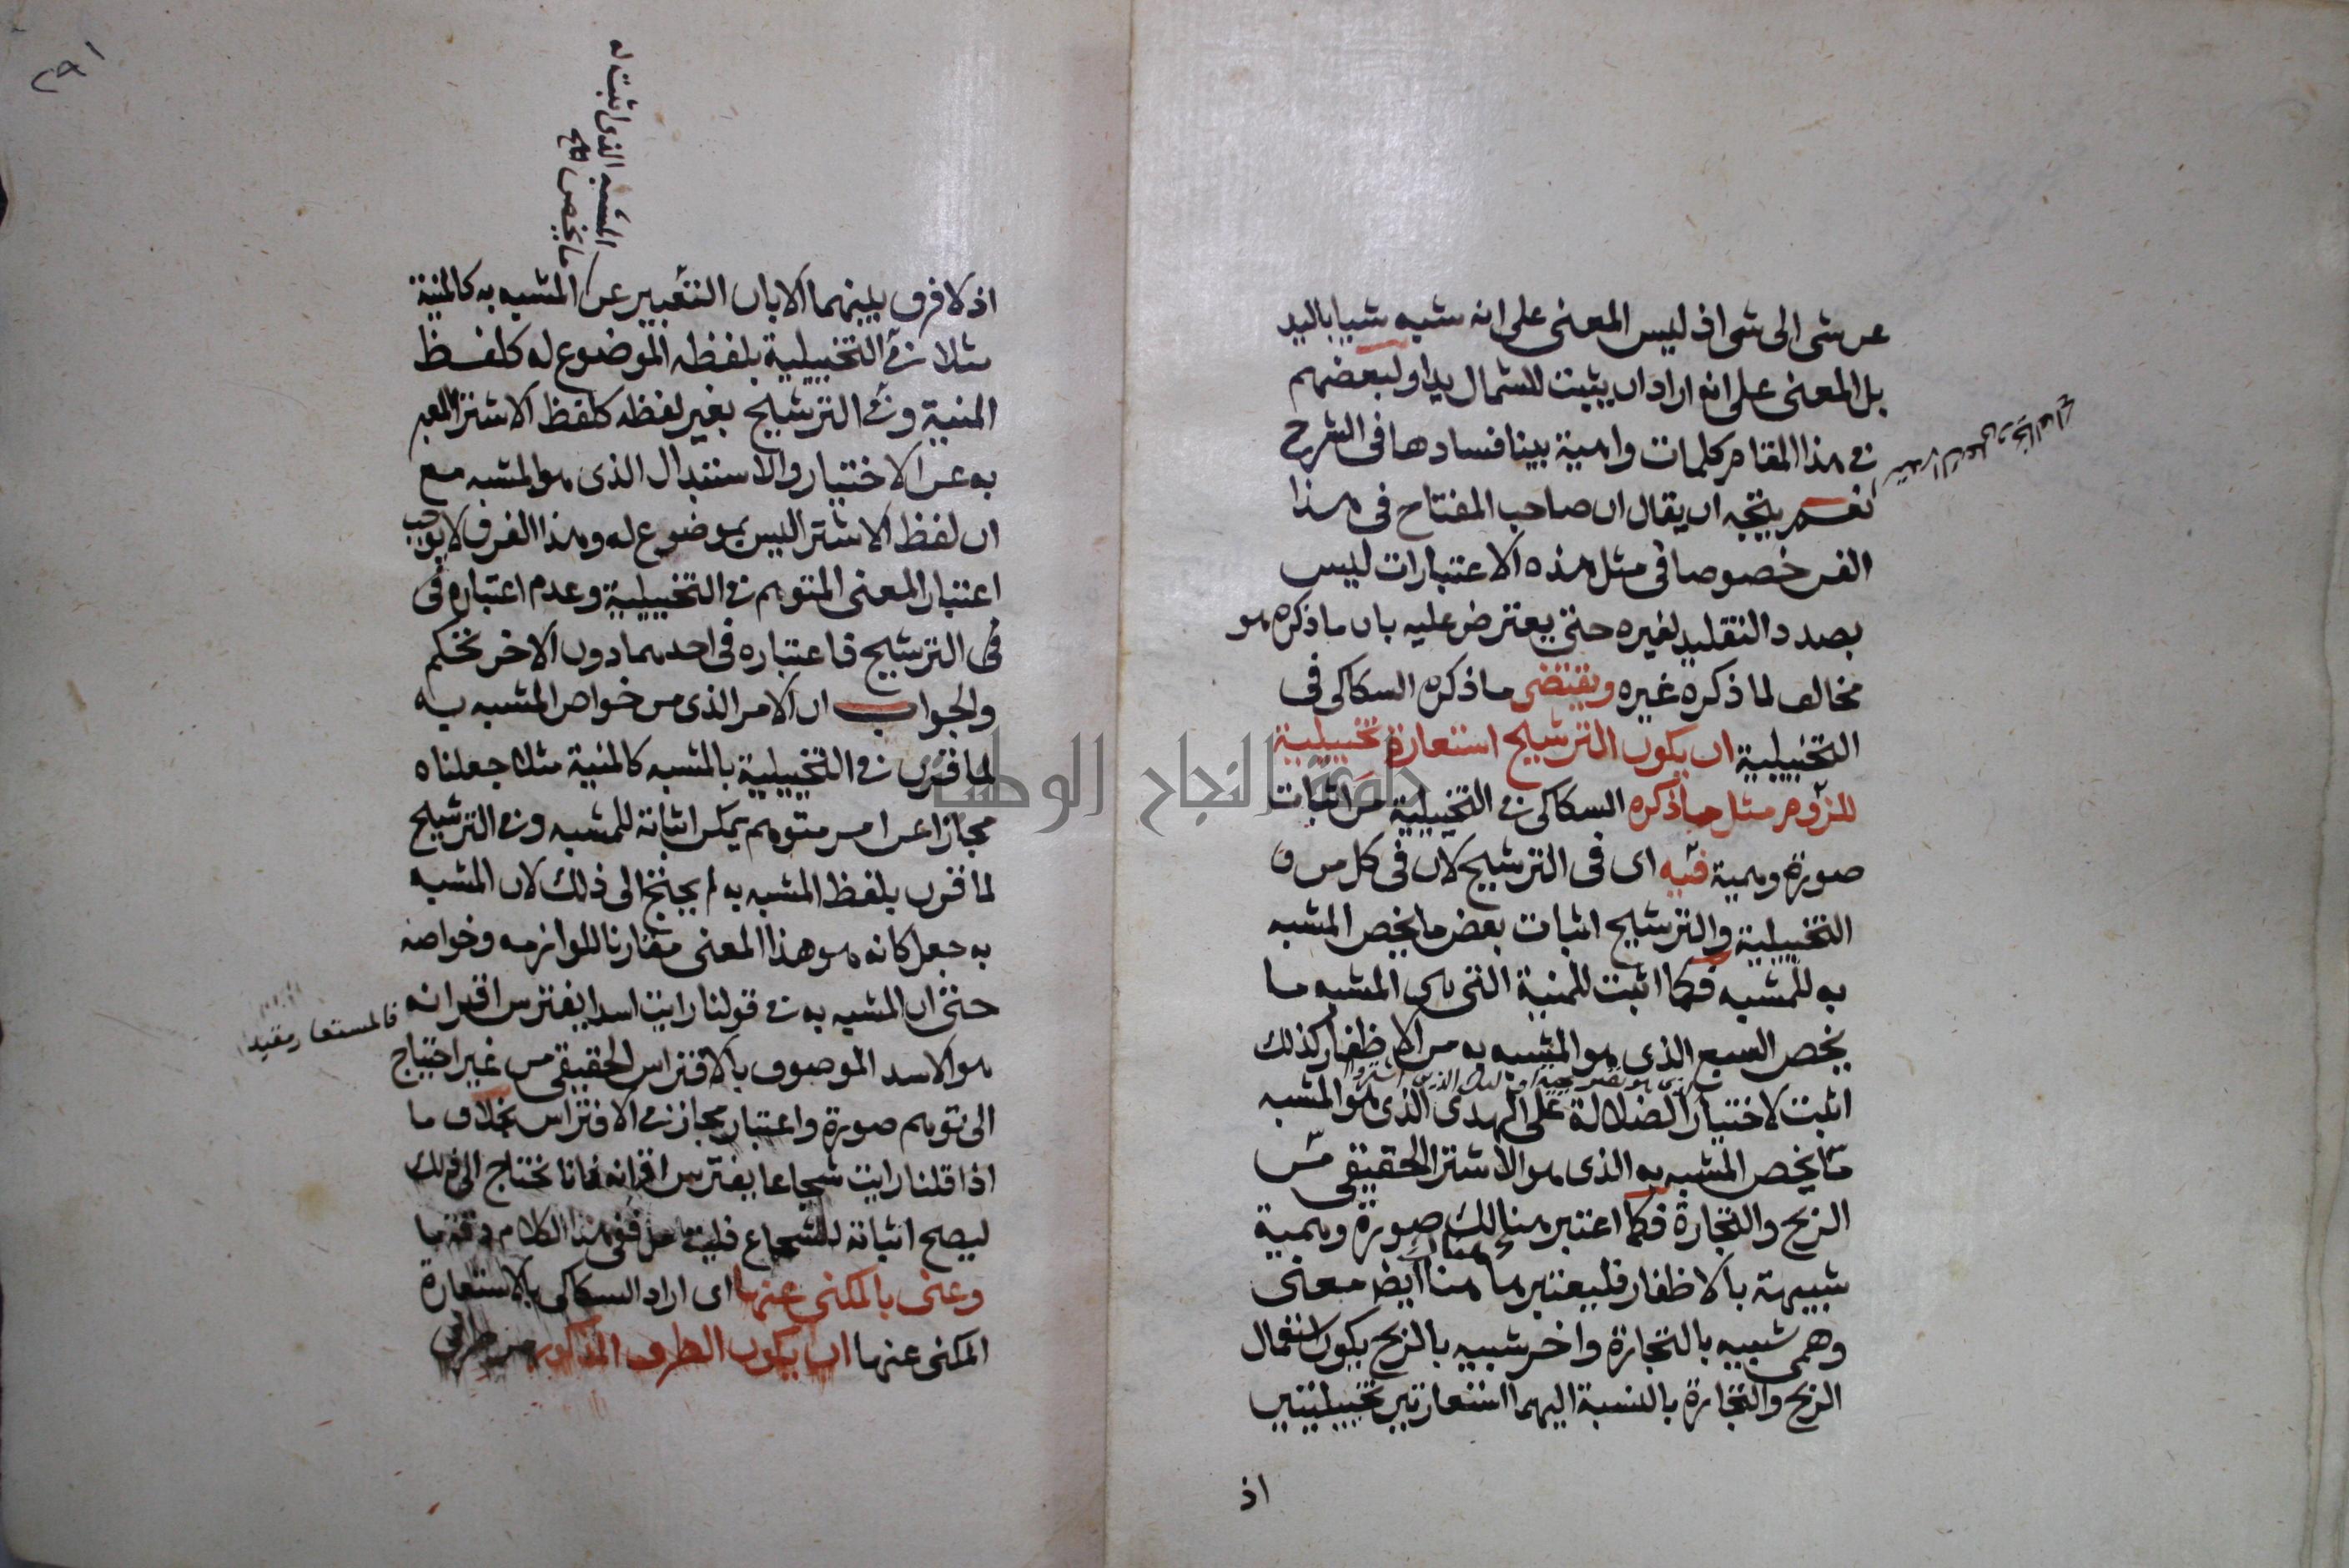 عن شى الى شى اذ ليس المعنى على انه شبه شيا باليد
بل المعنى على انه اراد ان يثبت للشمال يدا ولبعضهم
فى هذا المقام كلمات واهية بينا فسادها فى الشرح
نعم يتجه ان يقال ان صاحب المفتاح فى هذا
الفن خصوصا فى مثل هذه الاعتبارات ليس
بصدد التقليد لغيره حتى يعترض عليه بان ما ذكره هو
مخالف لما ذكره غيره ويقتضى ما ذكره السكاكى فى
التخييلية ان يكون الترشيح استعارة تخييلية
للزوم مثل ما ذكره السكاكى فى التخييلية من اثبات
صورة وهمية فيه اى فى الترشيح لان فى كل من
التخييلية والترشيح اثبات بعض ما يخص المشبه
به للمشبه فكما اثبت للمنية التى هى المشبه ما
يخص السبع الذى هو المشبه به من الاظفار كذلك
اثبت لاختيار الضلالة على الهدى الذى هو المشبه
ما يخص المشبه به الذى هو الاشترا الحقيقى من
الربح والتجارة فكما اعتبر هنالك صورة وهمية
شبيهة بالاظفار فليعتبر هاهنا ايض معنى
وهمى شبيه بالتجارة واخر شبيه بالربح يكون استعمال
الربح والتجارة بالنسبة اليهما استعارتين تخييليتين
اذ
٢٩١
المشبه الذى اثبت له
ما يخص
اذ لا فرق بينهما الا بان التعبير عن المشبه به كالمنية
مثلا فى التخييلية بلفظه الموضوع له كلفظ
المنية وفى الترشيح بغير لفظه كلفظ الاشترا المعبر
به عن الاختيار والاستبدال الذى هو المشبه مع
ان لفظ الاشترا ليس بموضوع له وهذا الفرق لا يوجب
اعتبار المعنى المتوهم فى التخييلية وعدم اعتباره فى
فى الترشيح فاعتباره فى احدهما دون الاخر تحكم
والجواب ان الامر الذى من خواص المشبه به
لما قرن فى التخييلية بالمشبه كالمنية مثلا جعلناه
مجازا عن امر متوهم يمكن اثباته للمشبه وفى الترشيح
لما قرن بلفظ المشبه به لم يحتج الى ذلك لان المشبه
به جعل كانه هو هذا المعنى مقارنا للوازمه وخواصه
حتى ان المشبه به فى قولنا رايت اسدا يفترس اقرانه
فالمستعار مقيد
هو الاسد الموصوف بالافتراس الحقيقى من غير احتياج
الى توهم صورة واعتبار مجاز فى الافتراس بخلاف ما
اذا قلنا رايت شجاعا يفترس اقرانه فانا نحتاج الى ذلك
ليصح اثباته للشجاع فليتامل ففى هذا الكلام دقة ما
وعنى بالمكنى عنها اى اراد السكاكى بالاستعارة
المكنى عنها ان يكون الطرف المذكور من طرفى
جامعة النجاح الوطنية